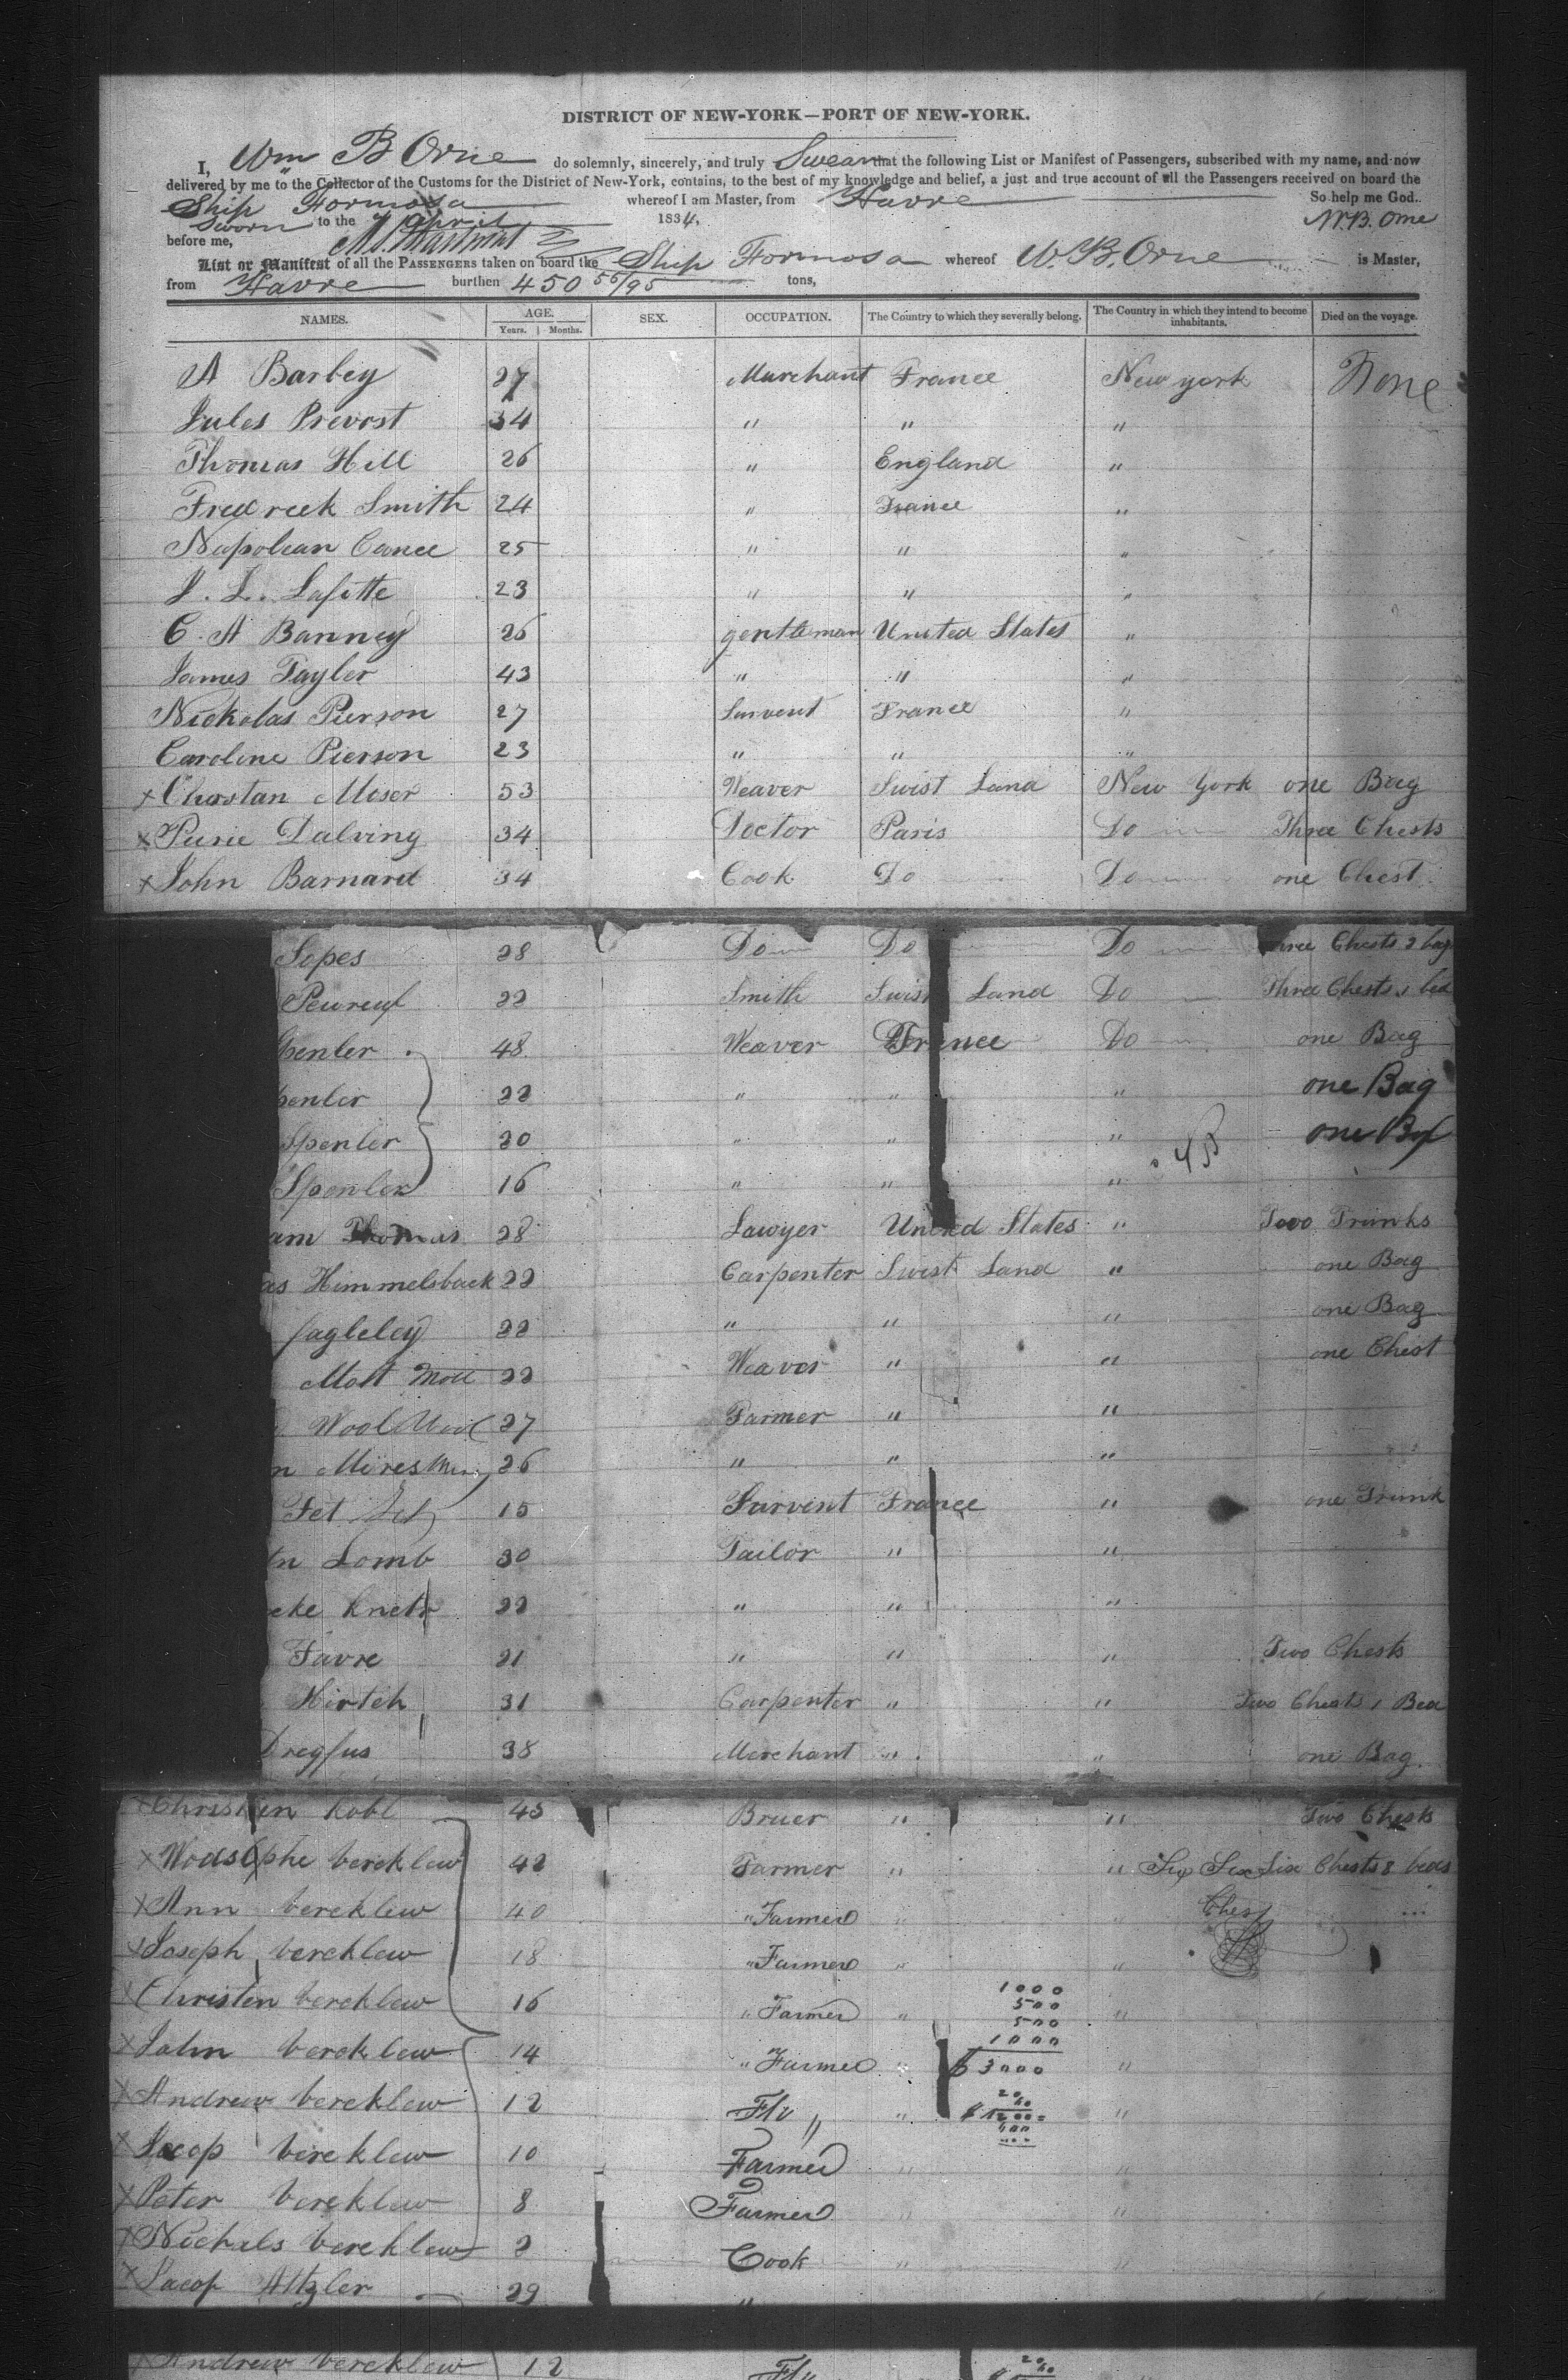 DISTRICT OF NEW-YORK—PORT OF NEW-YORK.
I, Wm B Orne do solemnly, sincerely, and truly Swear that the following List or Manifest of Passengers, subscribed with my name, and now
delivered by me to the Collector of the Customs for the District of New-York, contains, to the best of my knowledge and belief, a just and true account of all the Passengers received on board the
Ship Formosa whereof I am Master, from Havre So help me God..
Sworn to the 7 April 1834. W. B. Orne
before me,
List or Manifest of all the PASSENGERS taken on board the Ship Formosa whereof W. B. Orne is Master,
from Havre burthen 450 56/95 tons,
NAMES. AGE. SEX. OCCUPATION. The Country to which they severally belong. The Country in which they intend to become inhabitants. Died on the voyage.
Years. Months.
A Barbey 27 Marchant France New york None
Jules Prevost 34 " " "
Thomas Hill 26 " England "
Fredreek Smith 24 " France "
Napolean Cance 25 " " "
J. L. Lafitte 23 " " "
C. A Banney 26 gentleman United States "
James Tayler 43 " " "
Nickolas Pierson 27 Survent France "
Caroline Pierson 23 " " "
x Moser 53 Weaver Swist Land New York one Bag
x Dalving 34 Doctor Paris Do Three Chests
x John Barnard 34 Cook Do Do one Chest
Lopes 28 Do Do Do Three Chests 2 bag
22 Smith Swist Land Do Three Chests 1 bed
penler 48 Weaver France Do one Bag
penler 22 " " " one Bag
Spenler 20 " " " one Box
Spenler 16 " " "
am Thomas 28 Lawyer United States " Two Trunks
as Himmelsback 22 Carpenter Swist Land " one Bag
fagleley 22 " " " one Bag
Mott Mott 22 Weaver " " one Chest
Wool Wool 27 Farmer " "
n Mires 26 " " "
Fet 15 Survent France " one Trunk
tn Lomb 30 Tailor " "
eke Knetr 22 " " "
Favre 21 " " " Two Chests
Hirtch 31 Carpenter " " Two Chests 1 Bed
Dreyfus 38 Merchant " " one Bag
x Christen Kobl 45 Bruer " " Two Chests
x berchlew 42 Farmer " " Six Six Six Chests 8 beds
x Ann berchlew 40 " Farmer " " Ches
x Joseph berchlew 18 " Farmer " "
x Christen berchlew 16 " Farmer " "
1000
500
500
1000
x John berchlew 14 " Farmer " $ 3000 "
x Andrew berchlew 12 " "
x Jacop berchlew 10 Farmer " "
x Peter berchlew 8 Farmer " "
x Nichals berchlew 2 Cook " "
x Jacop Altzler 29 "
Andrew berchlew 12